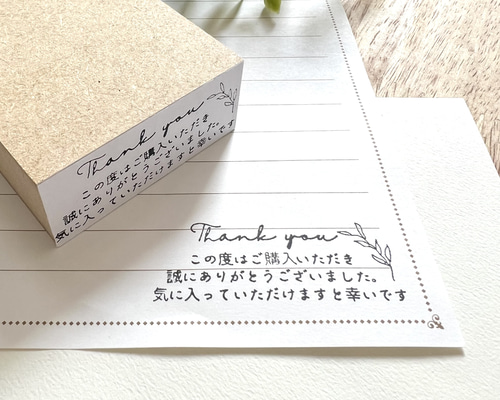 Thank you
この度はご購入いただき
誠にありがとうございました。
気に入っていただけますと幸いです
Thank you
この度はご購入いただき
誠にありがとうございました。
気に入っていただけますと幸いです